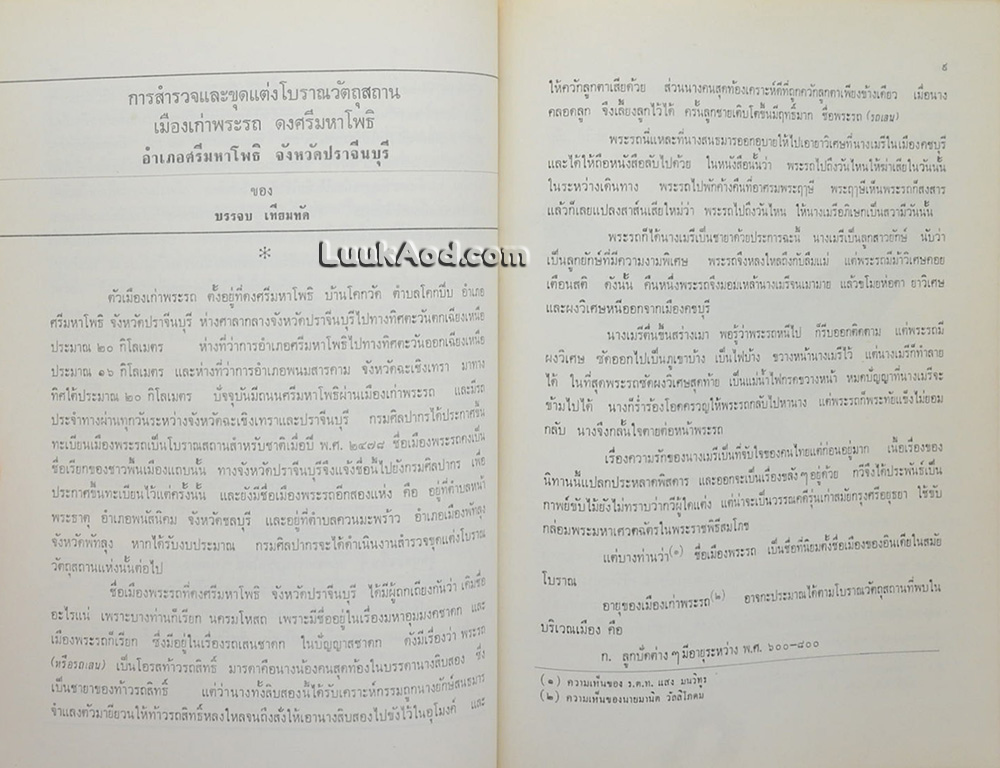 การสำรวจและขุดแต่งโบราณวัตถุสถาน
เมืองเก่าพระรถ ดงศรีมหาโพธิ
อำเภอศรีมหาโพธิ จังหวัดปราจีนบุรี
ของ
บรรจบ เทียมทัด
*
LuukAod.com
ตัวเมืองเก่าพระรถ ตั้งอยู่ที่ดงศรีมหาโพธิ บ้านโคกวัด ตำบลโคกปีบ อำเภอ
ศรีมหาโพธิ จังหวัดปราจีนบุรี ห่างศาลากลางจังหวัดปราจีนบุรีไปทางทิศตะวันตกเฉียงเหนือ
ประมาณ ๒๐ กิโลเมตร ห่างที่ว่าการอำเภอศรีมหาโพธิไปทางทิศตะวันออกเฉียงเหนือ
ประมาณ ๑๖ กิโลเมตร และห่างที่ว่าการอำเภอพนมสารคาม จังหวัดฉะเชิงเทรา มาทาง
ทิศใต้ประมาณ ๒๐ กิโลเมตร ปัจจุบันมีถนนศรีมหาโพธิผ่านเมืองเก่าพระรถ และมีรถ
ประจำทางผ่านทุกวันระหว่างจังหวัดฉะเชิงเทราและปราจีนบุรี กรมศิลปากรได้ประกาศขึ้น
ทะเบียนเมืองพระรถเป็นโบราณสถานสำหรับชาติเมื่อปี พ.ศ. ๒๔๗๘ ชื่อเมืองพระรถคงเป็น
ชื่อเรียกของชาวพื้นเมืองแถบนั้น ทางจังหวัดปราจีนบุรีจึงแจ้งชื่อนี้ไปยังกรมศิลปากร เพื่อ
ประกาศขึ้นทะเบียนไว้แต่ครั้งนั้น และยังมีชื่อเมืองพระรถอีกสองแห่ง คือ อยู่ที่ตำบลหน้า
พระธาตุ อำเภอพนัสนิคม จังหวัดชลบุรี และอยู่ที่ตำบลควนมะพร้าว อำเภอเมืองพัทลุง
จังหวัดพัทลุง หากได้รับงบประมาณ กรมศิลปากรจะได้ดำเนินงานสำรวจขุดแต่งโบราณ
วัตถุสถานแห่งนั้นต่อไป
ชื่อเมืองพระรถที่ดงศรีมหาโพธิ จังหวัดปราจีนบุรี ได้มีผู้ถกเถียงกันว่า เดิมชื่อ
อะไรแน่ เพราะบางท่านก็เรียก นครมโหสถ เพราะมีชื่ออยู่ในเรื่องมหาอุมมงคชาดก และ
เมืองพระรถก็เรียก ซึ่งมีอยู่ในเรื่องรถเสนชาดก ในปัญญาสชาดก ดังมีเรื่องว่า พระรถ
(หรือรถเสน) เป็นโอรสท้าวรถสิทธิ์ มารดาคือนางน้องคนสุดท้องในบรรดานางสิบสอง ซึ่ง
เป็นชายาของท้าวรถสิทธิ์ แต่ว่านางทั้งสิบสองนี้ได้รับเคราะห์กรรมถูกนางยักษ์สนธมาร
จำแลงตัวมายียวนให้ท้าวรถสิทธิ์หลงใหลจนถึงสั่งให้เอานางสิบสองไปขังไว้ในอุโมงค์ และ
๕
ให้ควักลูกตาเสียด้วย ส่วนนางคนสุดท้องเคราะห์ดีที่ถูกควักลูกตาเพียงข้างเดียว เมื่อนาง
คลอดลูก จึงเลี้ยงลูกไว้ได้ ครั้นลูกชายเติบโตขึ้นมีฤทธิ์มาก ชื่อพระรถ (รถเสน)
พระรถนี่แหละที่นางสนธมารออกอุบายให้ไปเอายาวิเศษที่นางเมรีในเมืองคชบุรี
และได้ให้ถือหนังสือลับไปด้วย ในหนังสือนั้นว่า พระรถไปถึงวันไหนให้ฆ่าเสียในวันนั้น
ในระหว่างเดินทาง พระรถไปพักค้างคืนที่อาศรมพระฤๅษี พระฤๅษีเห็นพระรถก็สงสาร
แล้วก็เลยแปลงสาส์นเสียใหม่ว่า พระรถไปถึงวันไหน ให้นางเมรีอภิเษกเป็นสวามีวันนั้น
พระรถก็ได้นางเมรีเป็นชายาด้วยประการฉะนี้ นางเมรีเป็นลูกสาวยักษ์ นับว่า
เป็นลูกยักษ์ที่มีความงามพิเศษ พระรถจึงหลงใหลถึงกับลืมแม่ แต่พระรถมีม้าวิเศษคอย
เตือนสติ ดังนั้น คืนหนึ่งพระรถจึงมอมเหล้านางเมรีจนเมามาย แล้วขโมยห่อตา ยาวิเศษ
และผงวิเศษหนีออกจากเมืองคชบุรี
นางเมรีตื่นขึ้นสร่างเมา พอรู้ว่าพระรถหนีไป ก็รีบออกติดตาม แต่พระรถมี
ผงวิเศษ ซัดออกไปเป็นภูเขาบ้าง เป็นไฟบ้าง ขวางหน้านางเมรีไว้ แต่นางเมรีก็ทำลาย
ได้ ในที่สุดพระรถซัดผงวิเศษสุดท้าย เป็นแม่น้ำไฟกรดขวางหน้า หมดปัญญาที่นางเมรีจะ
ข้ามไปได้ นางก็ร่ำร้องโอดครวญให้พระรถกลับไปหานาง แต่พระรถก็พระทัยแข็งไม่ยอม
กลับ นางจึงกลั้นใจตายต่อหน้าพระรถ
เรื่องความรักของนางเมรีเป็นที่จับใจของคนไทยแต่ก่อนอยู่มาก เนื้อเรื่องของ
นิทานนี้แปลกประหลาดพิสดาร และออกจะเป็นเรื่องขลังๆ อยู่ด้วย กวีจึงได้ประพันธ์เป็น
กาพย์ขับไม้ยังไม่ทราบว่ากวีผู้ใดแต่ง แต่น่าจะเป็นวรรณคดีรุ่นเก่าสมัยกรุงศรีอยุธยา ใช้ขับ
กล่อมพระมหาเศวตฉัตรในพระราชพิธีสมโภช
แต่บางท่านว่า(๑) ชื่อเมืองพระรถ เป็นชื่อที่นิยมตั้งชื่อเมืองของอินเดียในสมัย
โบราณ
อายุของเมืองเก่าพระรถ(๒) อาจกะประมาณได้ตามโบราณวัตถุสถานที่พบใน
บริเวณเมือง คือ
ก. ลูกปัดต่าง ๆ มีอายุระหว่าง พ.ศ. ๖๐๐-๘๐๐
(๑) ความเห็นของ ร.ต.ท. แสง มนวิทูร
(๒) ความเห็นของนายมานิต วัลลิโภดม